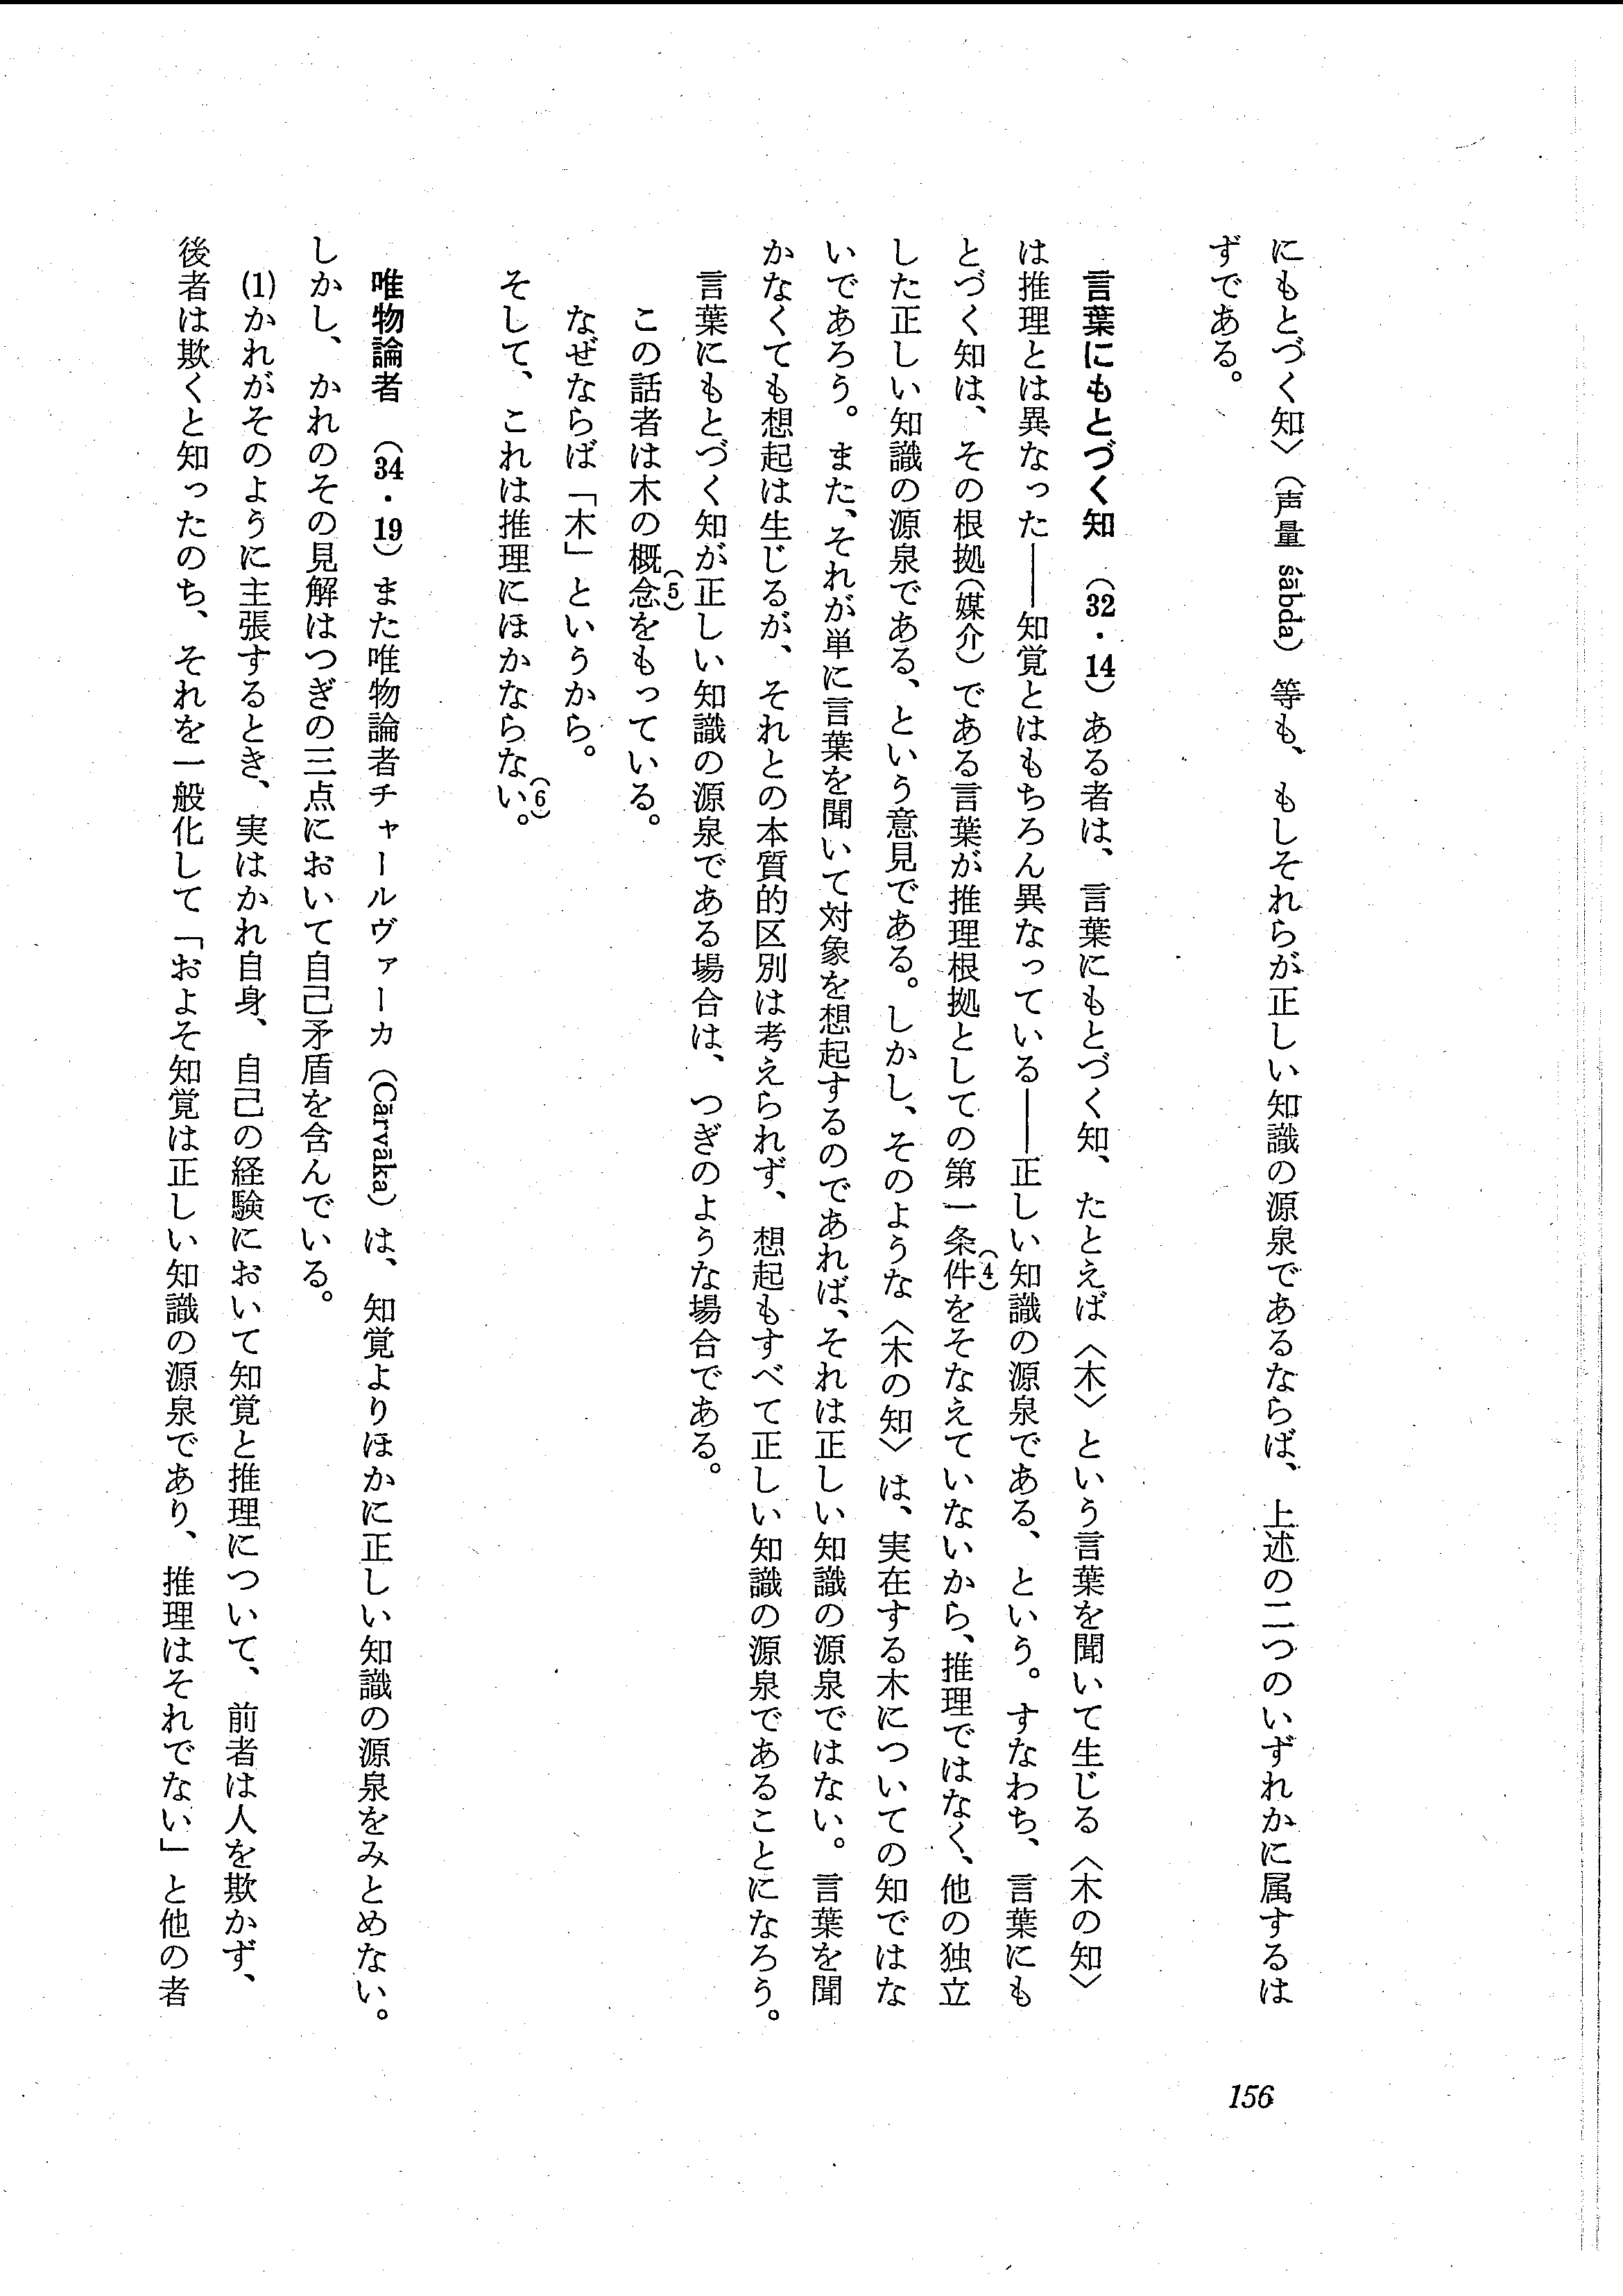 にもとづく知〉(声量 śābda)等も、もしそれらが正しい知識の源泉であるならば、上述の二つのいずれかに属するは
ずである。
言葉にもとづく知 (32・14)ある者は、言葉にもとづく知、たとえば〈木〉という言葉を聞いて生じる〈木の知〉
は推理とは異なった――知覚とはもちろん異なっている――正しい知識の源泉である、という。すなわち、言葉にも
とづく知は、その根拠(媒介)である言葉が推理根拠としての第一条件(4)をそなえていないから、推理ではなく、他の独立
した正しい知識の源泉である、という意見である。しかし、そのような〈木の知〉は、実在する木についての知ではな
いであろう。また、それが単に言葉を聞いて対象を想起するのであれば、それは正しい知識の源泉ではない。言葉を聞
かなくても想起は生じるが、それとの本質的区別は考えられず、想起もすべて正しい知識の源泉であることになろう。
言葉にもとづく知が正しい知識の源泉である場合は、つぎのような場合である。
この話者は木の概念(5)をもっている。
なぜならば「木」というから。
そして、これは推理にほかならない(6)。
唯物論者 (34・19)また唯物論者チャールヴァーカ(Cārvāka)は、知覚よりほかに正しい知識の源泉をみとめない。
しかし、かれのその見解はつぎの三点において自己矛盾を含んでいる。
(1)かれがそのように主張するとき、実はかれ自身、自己の経験において知覚と推理について、前者は人を欺かず、
後者は欺くと知ったのち、それを一般化して「およそ知覚は正しい知識の源泉であり、推理はそれでない」と他の者
156